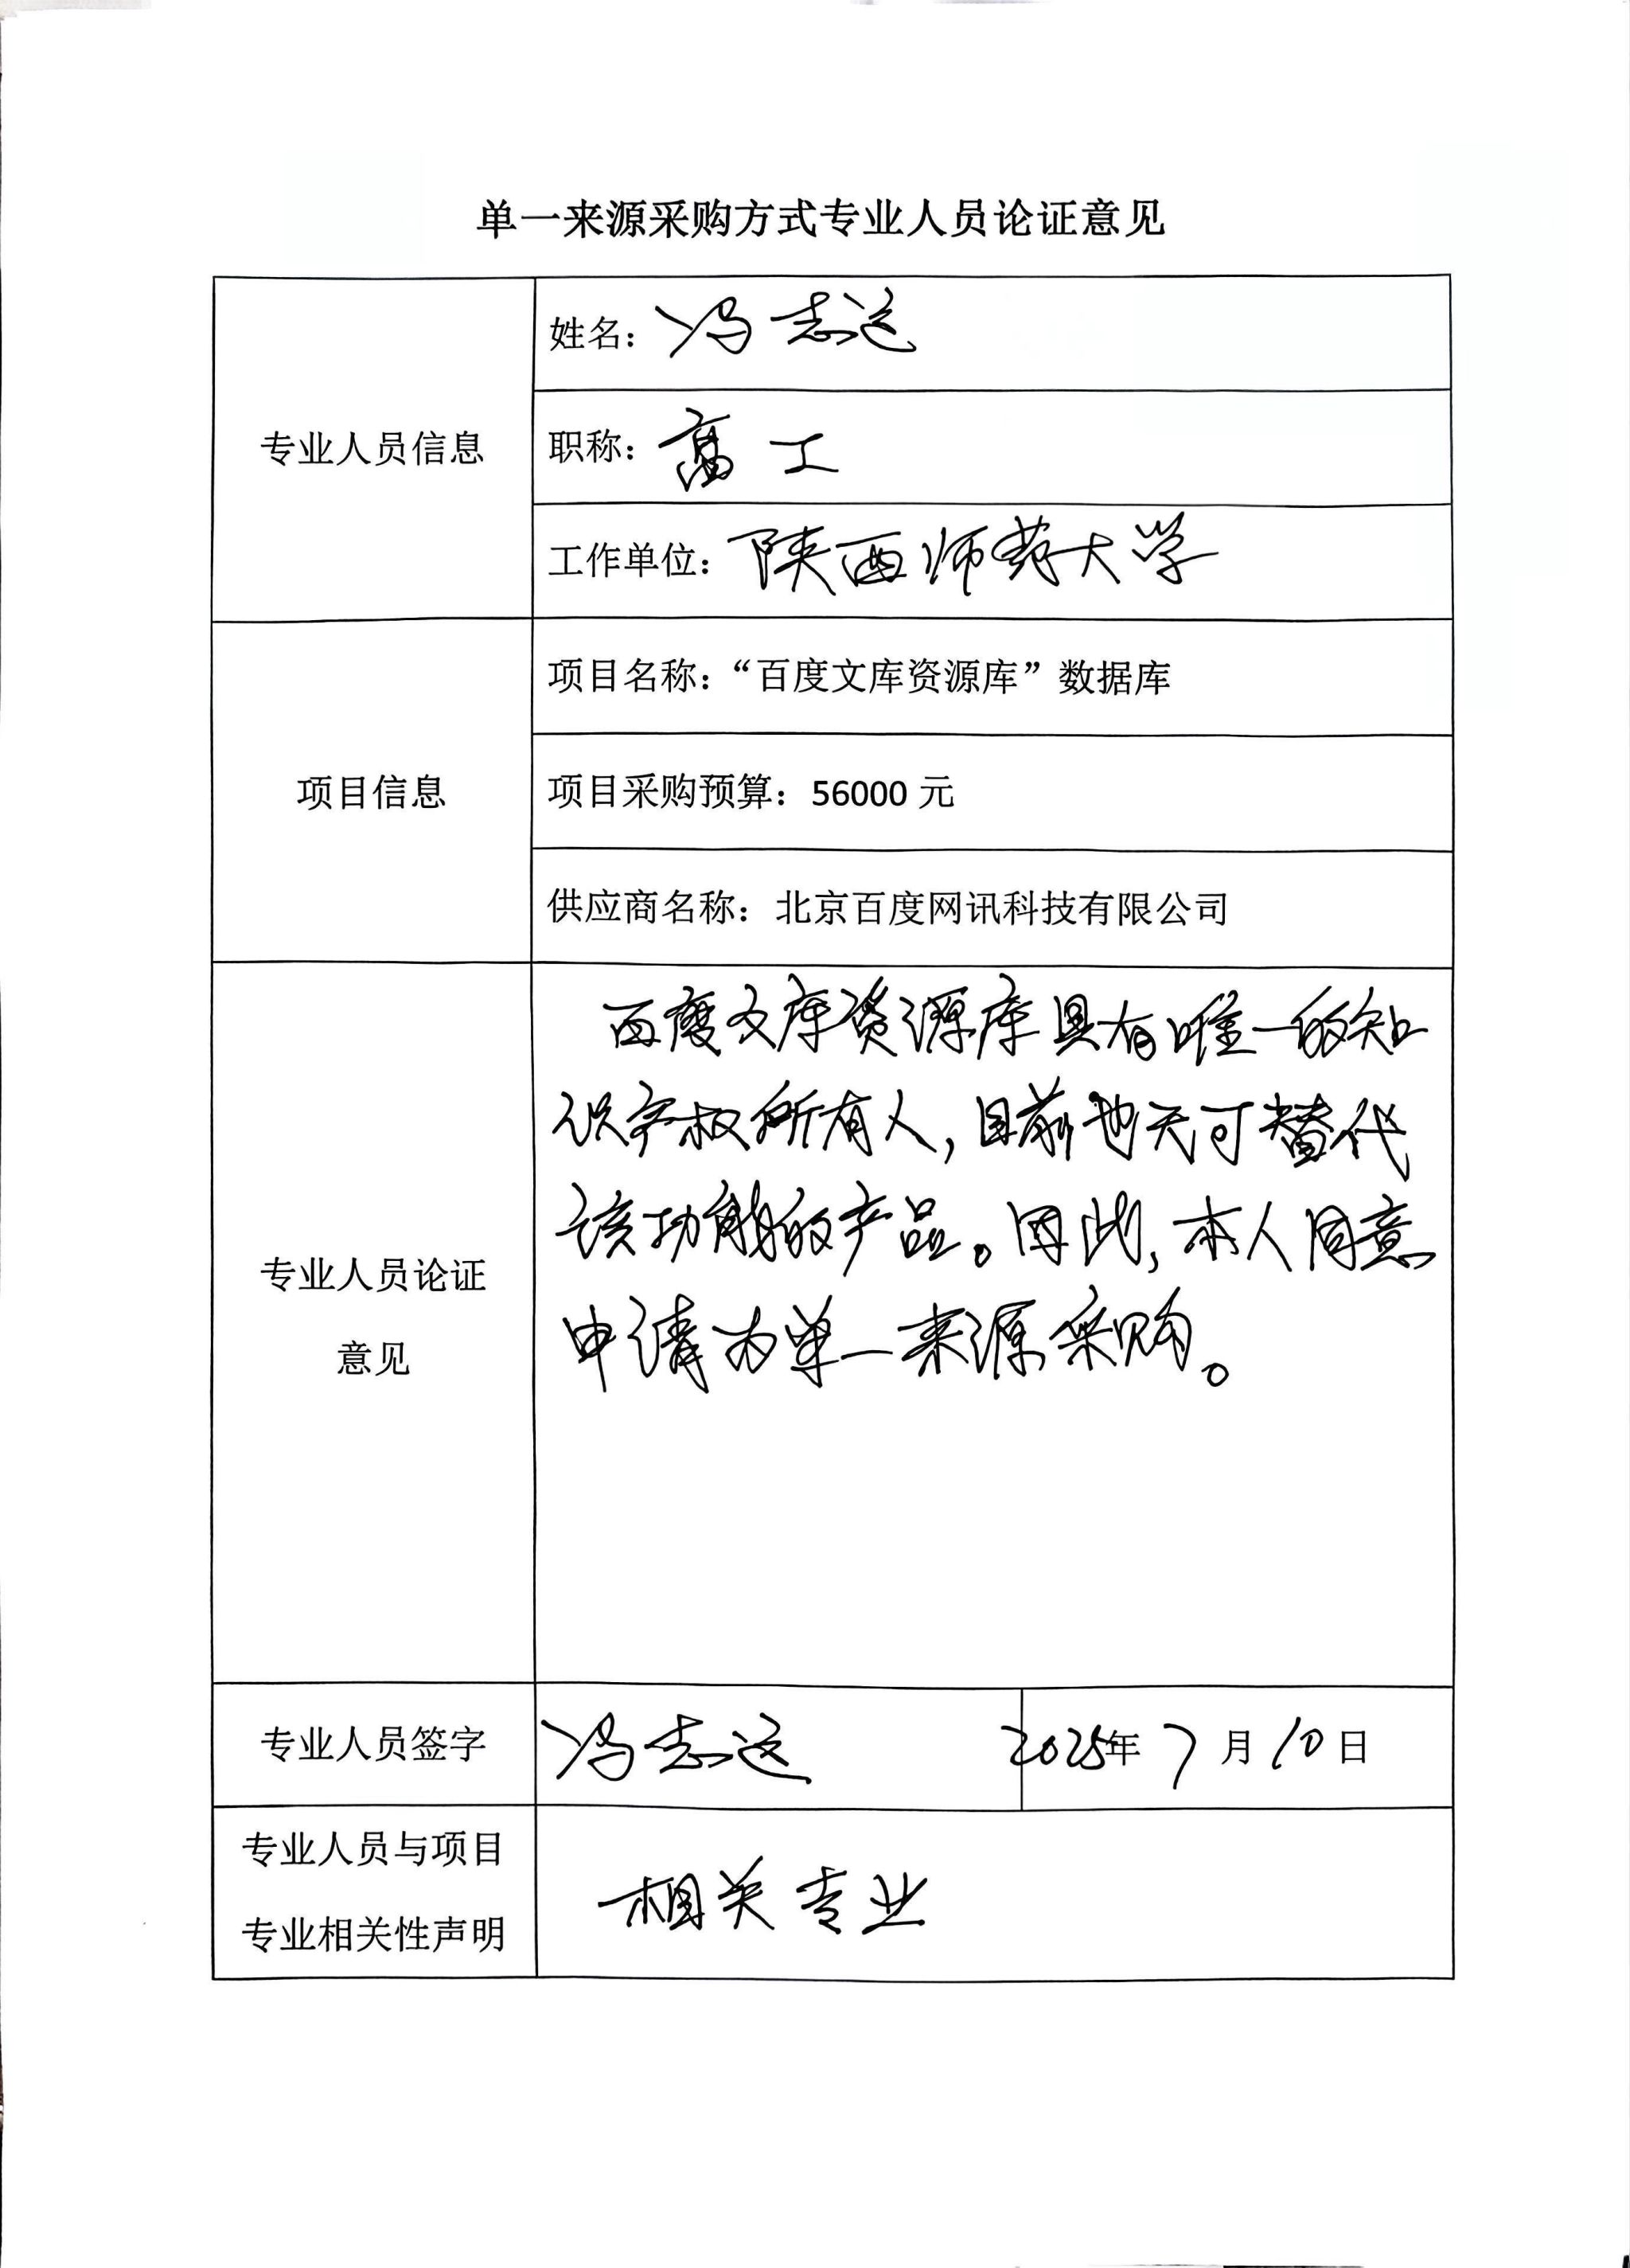 单一来源采购方式专业人员论证意见
专业人员信息
姓名：冯志远
职称：高工
工作单位：陕西师范大学
项目信息
项目名称：“百度文库资源库”数据库
项目采购预算：56000 元
供应商名称：北京百度网讯科技有限公司
专业人员论证
意见
百度文库资源库具有唯一的知
识产权所有人，目前也无可替代
该功能的产品。因此，本人同意
申请为单一来源采购。
专业人员签字
冯志远
2025年 7 月 10 日
专业人员与项目
专业相关性声明
相关专业